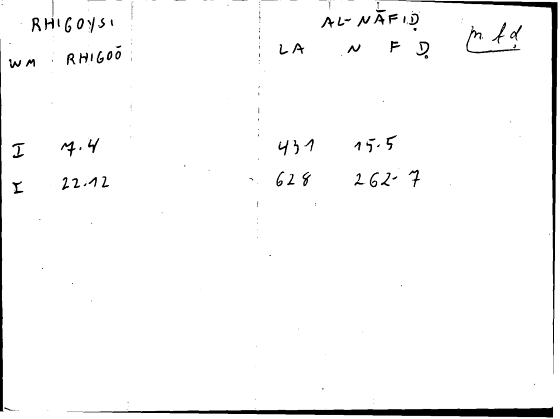 RHIGOYSI AL-NĀFIḌ
WM RHIGOŌ LA N F Ḍ n f ḍ
I 7.4 431 15.5
I 22.12 628 262.7